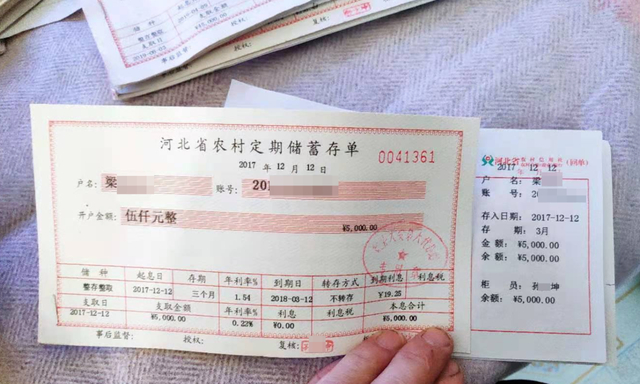 河北省农村定期储蓄存单
2017 年 12 月 12 日
0041361
户名: 梁
账号: 201
开户金额: 伍仟元整
¥5,000.00
储 种 起息日 存期 年利率% 到期日 转存方式 到期利息 利息税
整存整取 2017-12-12 三个月 1.54 2018-03-12 不转存 ¥19.25
支取日 支取金额 年利率% 利息 利息税 本息合计
2017-12-12 ¥5,000.00 0.22% ¥0.00 ¥5,000.00
事后监督: 授权: 复核:
河北省 (回单)
2017 12 12
年
户 名: 梁
账 号: 2
存入日期: 2017-12-12
存 期: 3月
金 额: ¥5,000.00
余额: ¥5,000.00
柜 员: 坤
余额: ¥5,000.00
事后监督: 授权: